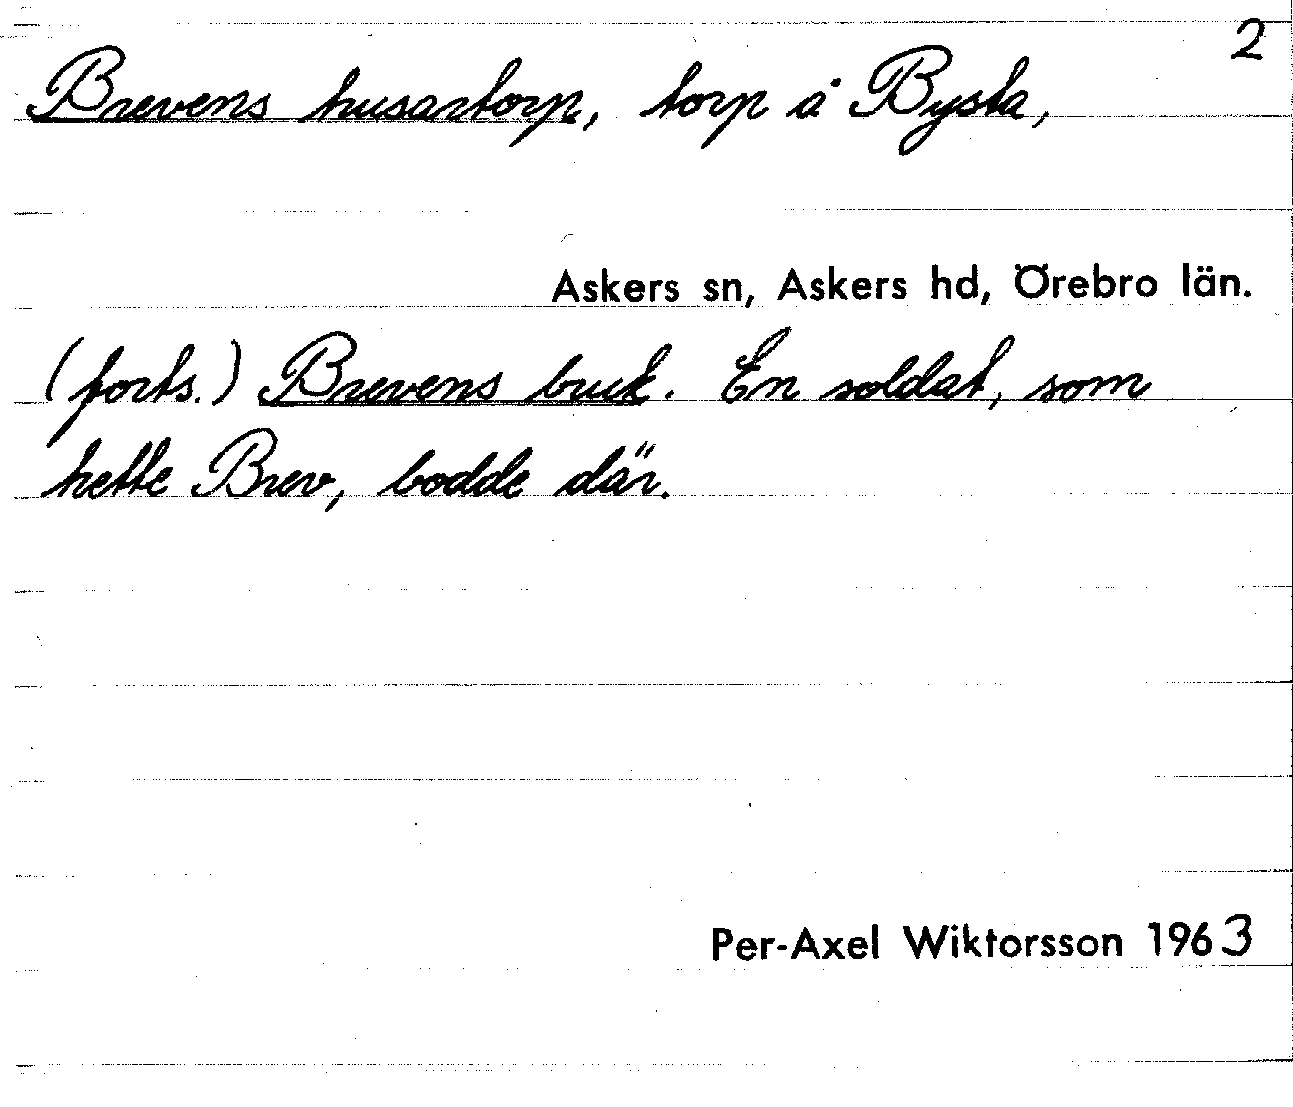 2
Brevens husartorp, torp å Bysta,
Askers sn, Askers hd, Örebro län.
(forts.) Brevens buck. En soldat, som
hette Brev, bodde där.
Per-Axel Wiktorsson 1963